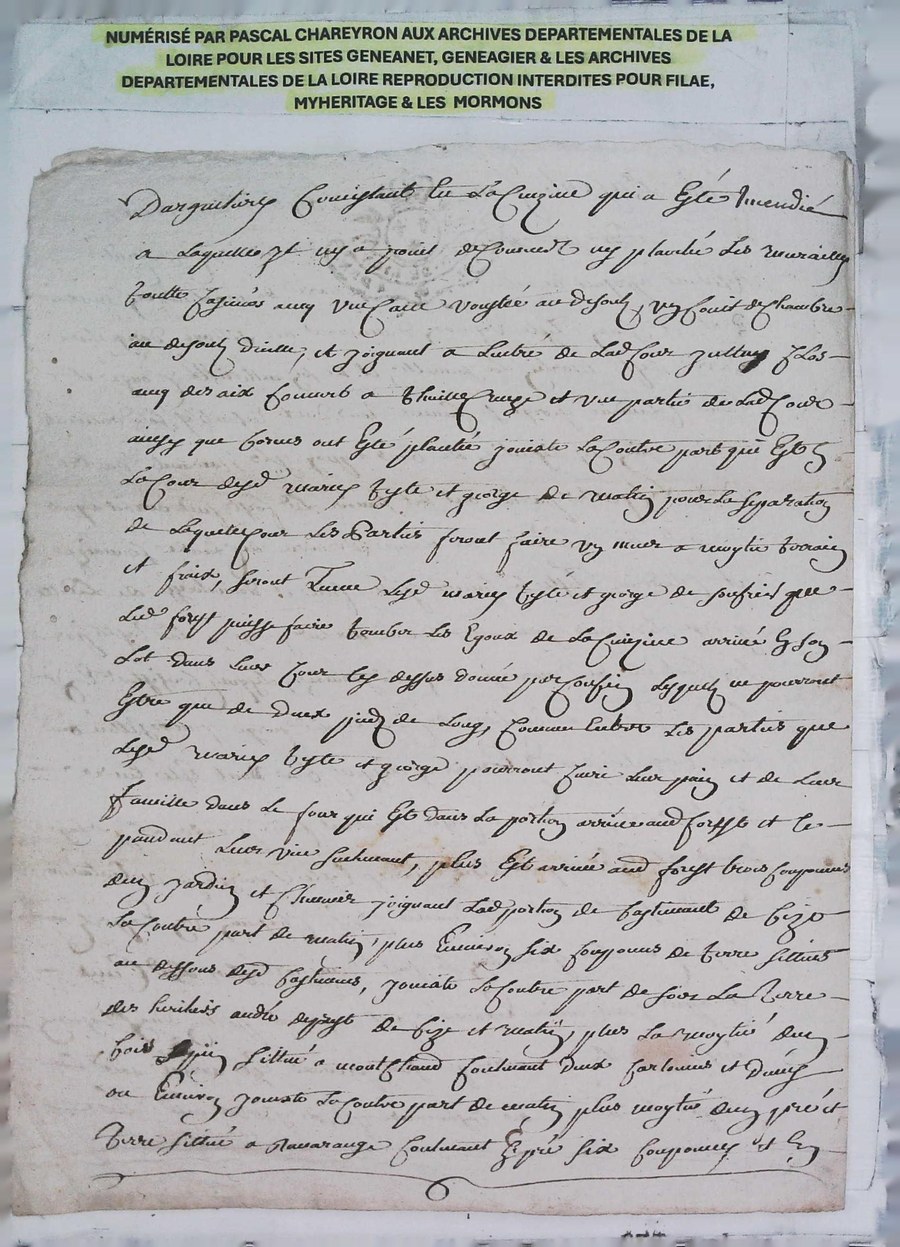 NUMÉRISÉ PAR PASCAL CHAREYRON AUX ARCHIVES DEPARTEMENTALES DE LA
LOIRE POUR LES SITES GENEANET, GENEAGIER & LES ARCHIVES
DEPARTEMENTALES DE LA LOIRE REPRODUCTION INTERDITES POUR FILAE,
MYHERITAGE & LES MORMONS
Consistant En La Cuizine qui a Esté Incendié
a Laquelle Il ny a point de Couvert ny planché Les murailles
une Cave voustée au desoubz, un de Chambre
au desoubz d'icelle, et joignant a de Lad Cour
aix Couverts a thuille Creuze et une partie de Lad Cour
ainsy que bornes ont Esté planté jouxte La Contre part qui Est
La Cour desd mariés et george de matin pour La Separation
de Laquelle Cour Les Parties feront faire un mur a moytié terrain
et fraix, Seront Lesd mariés et george de soufrir que
Led forest puisse faire tomber Les Egoux de La Cuizine arrivé En son
Lot dans Leur Cour Cy dessus donnée par Confin Lesquels ne pourront
Estre que de Deux piedz de Long, Comme Les parties que
Lesd mariés et george pourront Cuire Leur pain et de Leur
famille dans Le four qui Est dans La portion arrivée aud forest et Ce
pandant Leur vie Seulement, plus Est arrivée aud forest trois Couponnes
dun jardin et joignant Lad portion de bastiment de bize
La Contre part de matin, plus Environ six Couponnes de terre Sittués
au dessous desd bastimens, jouxte La Contre part de soir La Terre
des heritiers andré de bize et matin, plus La moytié dun
bois Sittué a Contenant Deux Cartonnés et demy
ou Environ jouxte La Contre part de matin plus moytié dun pré et
Terre Sittué a Contenant En pré six Couponnes et En